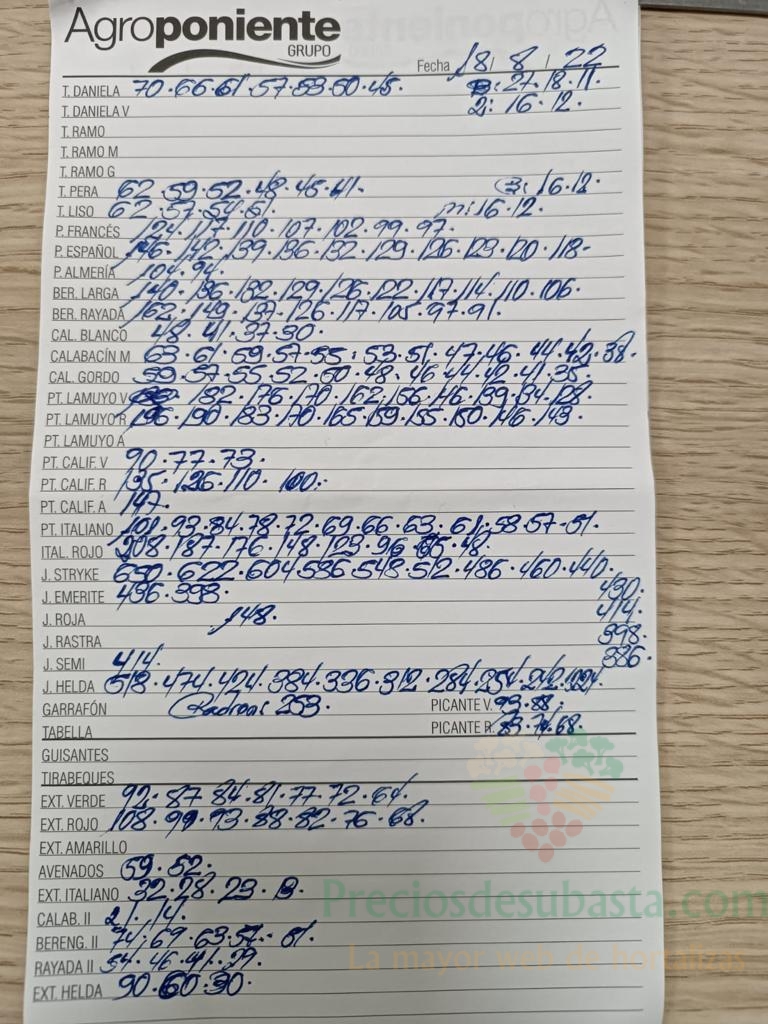 Agroponiente
GRUPO
Fecha 18 / 8 / 22
T. DANIELA 70·66·61·57·53·50·45· B: 27·18·11·
T. DANIELA V 2: 16·12·
T. RAMO
T. RAMO M
T. RAMO G
T. PERA 62·59·52·48·45·41· 16·12·
T. LISO 62·57·54·51· m: 16·12·
P. FRANCÉS 124·117·110·107·102·99·97·
P. ESPAÑOL 146·142·139·136·132·129·126·123·120·118-
P. ALMERÍA 104·94·
BER. LARGA 140·136·132·129·126·122·117·114·110·106·
BER. RAYADA 162·149·137·126·117·105·97·91·
CAL. BLANCO 48·41·37·30·
CALABACÍN M 63·61·59·57·55·53·51·47·46·44·42·38·
CAL. GORDO 59·57·55·52·50·48·46·44·42·41·35·
PT. LAMUYO V 182·176·170·162·156·146·139·134·128·
PT. LAMUYO R 196·190·183·170·165·159·155·150·146·143·
PT. LAMUYO A
PT. CALIF. V 90·77·73·
PT. CALIF. R 135·126·110·100·
PT. CALIF. A 147·
PT. ITALIANO 101·93·84·78·72·69·66·63·61·58·57·51·
ITAL. ROJO 208·187·176·148·123·96·48·
J. STRYKE 650·622·604·586·548·512·486·460·440·
J. EMERITE 436·398· 430·
J. ROJA 148· 414·
J. RASTRA 398·
J. SEMI 414· 386·
J. HELDA 518·474·424·384·336·312·284·254·242·224·
GARRAFÓN Padron: 253· PICANTE V. 93·88·
TABELLA PICANTE R. 83·74·68·
GUISANTES
TIRABEQUES
EXT. VERDE 92·87·84·81·77·72·64·
EXT. ROJO 108·99·93·88·82·76·68·
EXT. AMARILLO
AVENADOS 59·52·
EXT. ITALIANO 32·28·23·
Preciosdesubasta.com
CALAB. II 21·14·
BERENG. II 74·69·63·57·51·
La mayor web de hortalizas
RAYADA II 54·46·41·
EXT. HELDA 90·60·30·